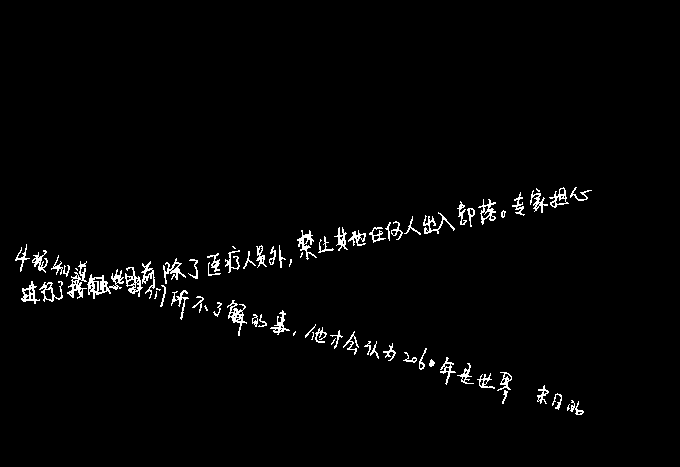 目前除了医疗人员外,禁止其他任何人出入部落。专家担心
进行了接触 们所不了解的事,他才会认为2060年是世界 末日的